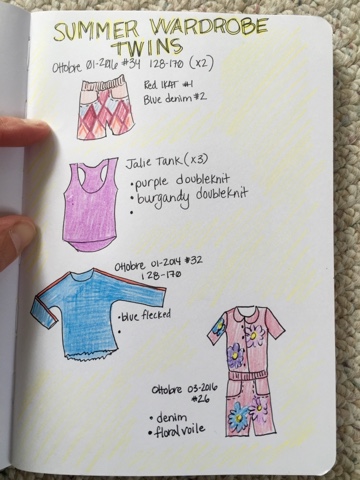 SUMMER WARDROBE
TWINS
Ottobre 01-2016 #34 128-170 (x2)
Red IKAT #1
Blue denim #2
Jalie Tank (x3)
• purple doubleknit
• burgandy doubleknit
•
Ottobre 01-2014 #32
128-170
• blue flecked
•
Ottobre 03-2016
#26
• denim
• floral voile